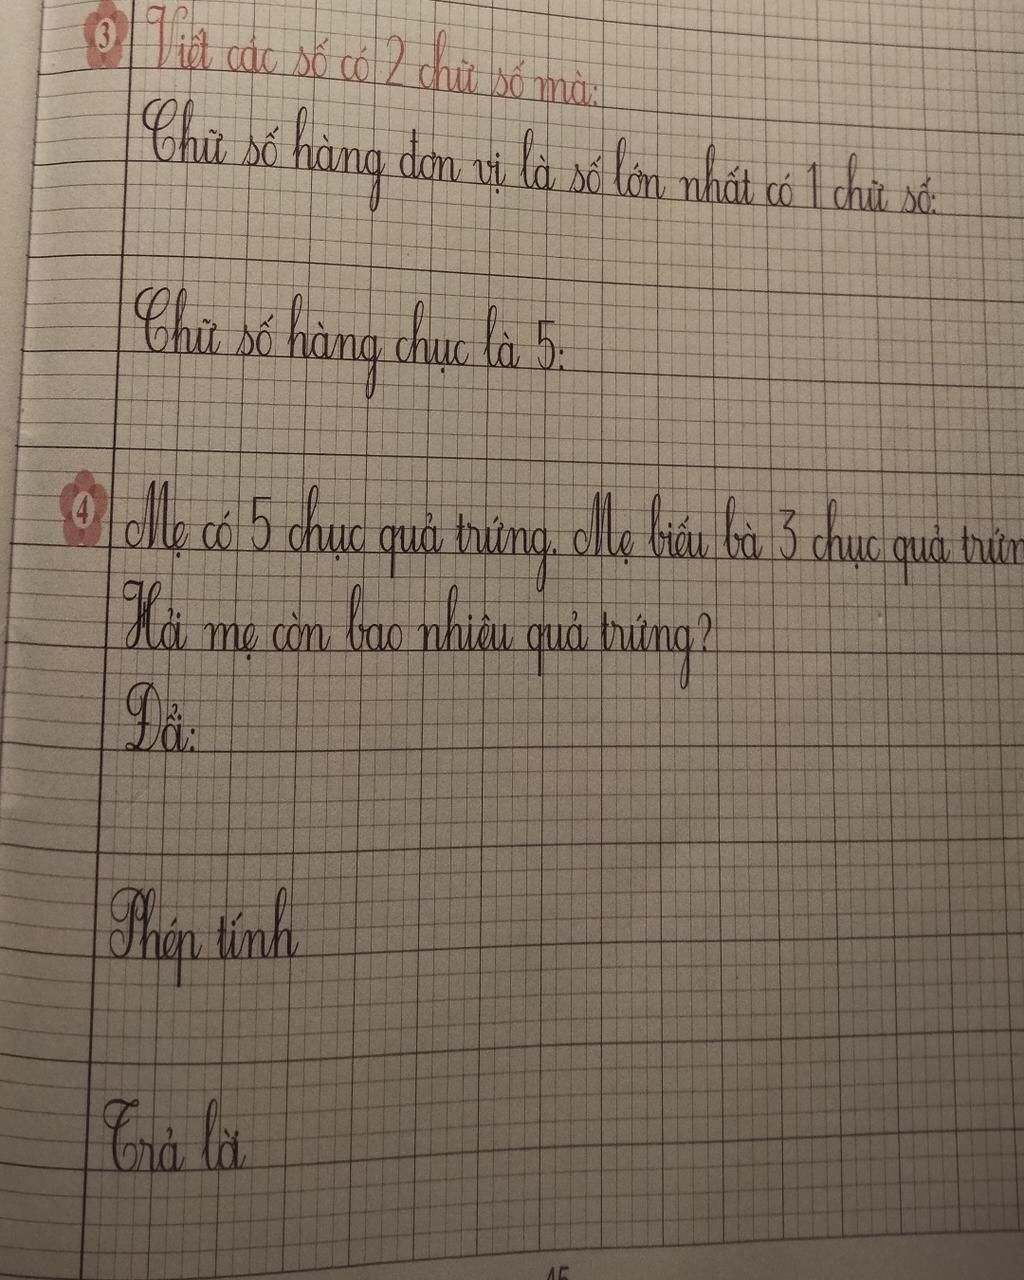 3 Viết các số có 2 chữ số mà:
Chữ số hàng đơn vị là số lớn nhất có 1 chữ số:
Chữ số hàng chục là 5:
4 Mẹ có 5 chục quả trứng. Mẹ biếu bà 3 chục quả trứn
Hỏi mẹ còn bao nhiêu quả trứng?
Đổi:
Phép tính
Trả lời